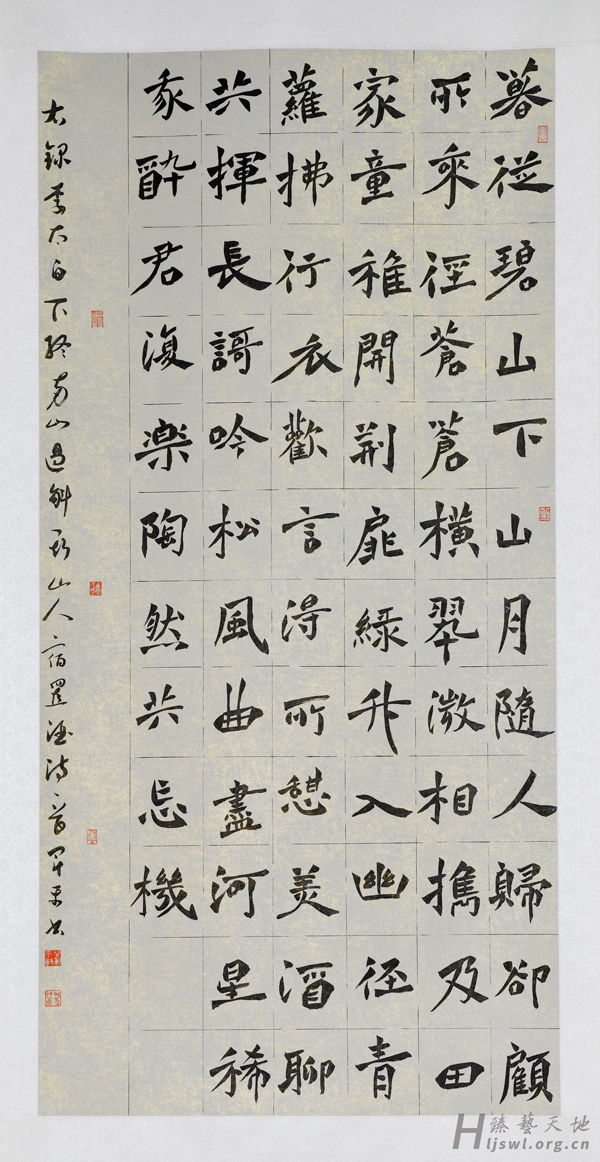 暮從碧山下山月隨人歸卻顧
所來徑蒼蒼橫翠微相攜及田
家童稚開荆扉緑竹入幽徑青
蘿拂行衣歡言得所憩美酒聊
共揮長謌吟松風曲盡河星稀
我醉君復樂陶然共忘機
右録李太白下終南山過斛斯山人宿置酒詩一首
臻藝天地
Hljswl.org.cn